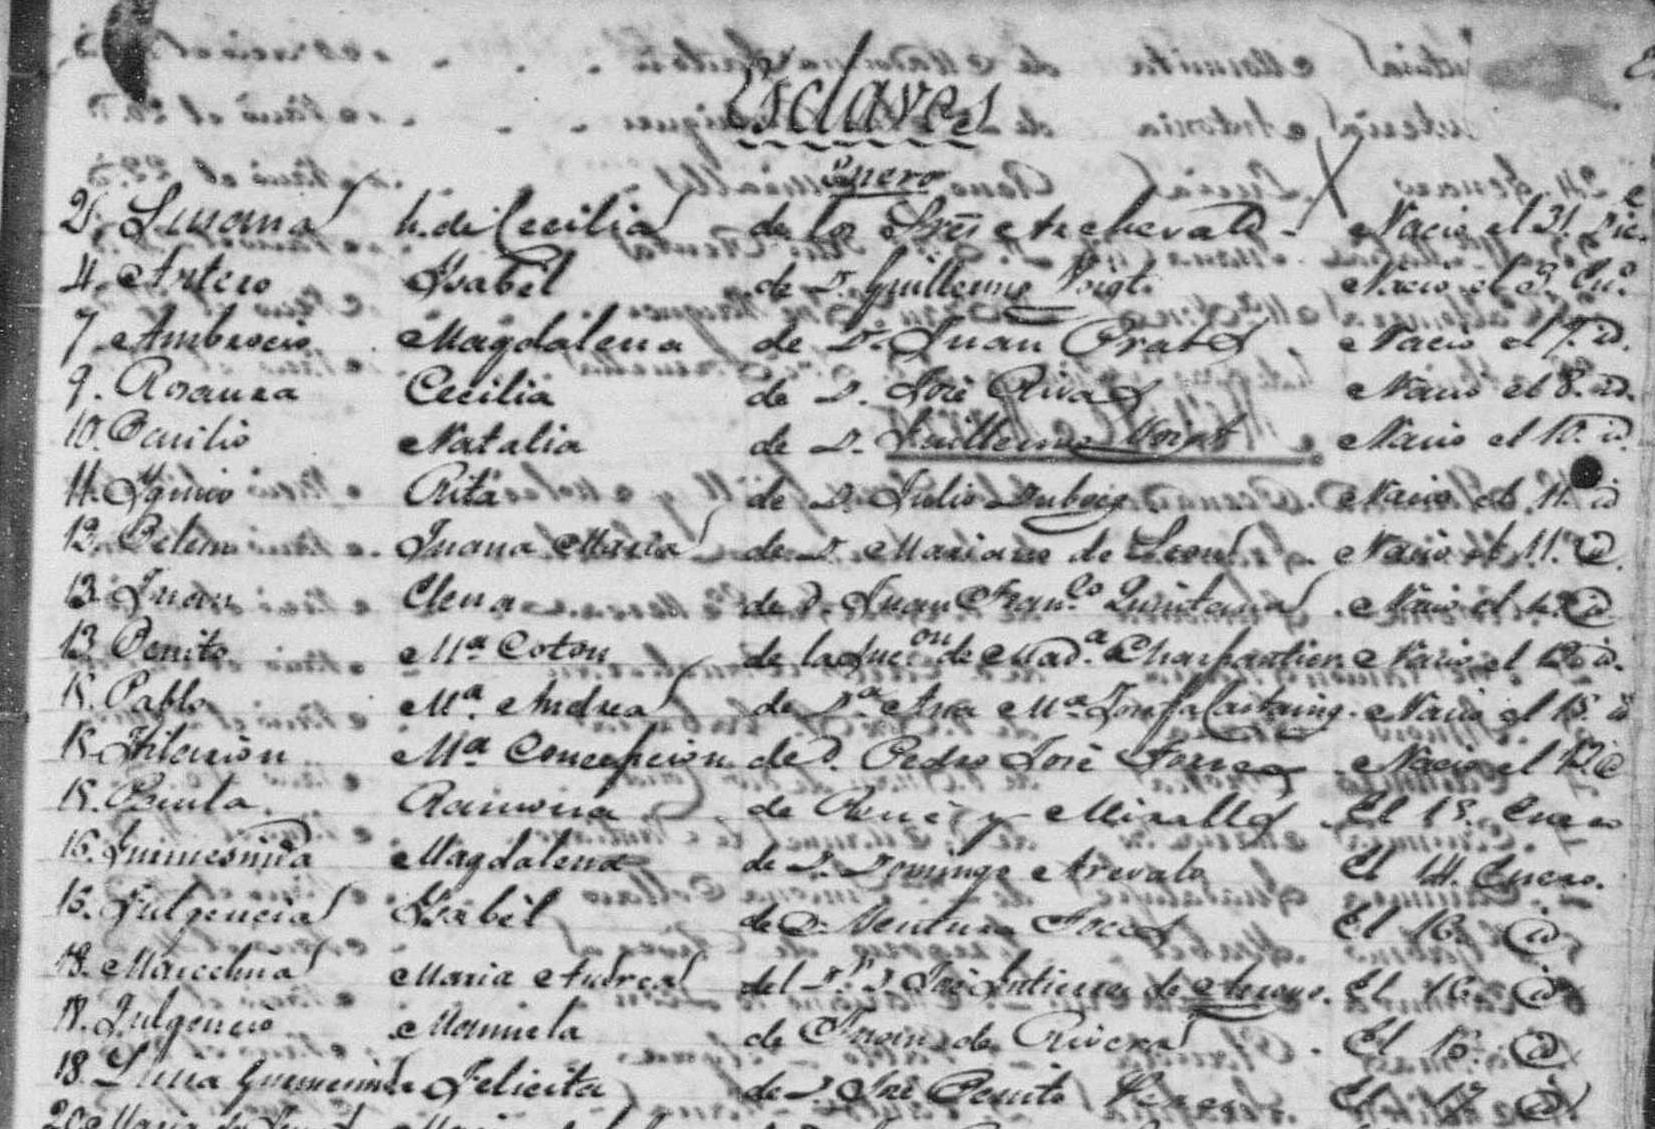 Esclavos
Enero
2. Susana h. de Cecilia de los Sres Nacio el 31. Dic.e
4. Artero Ysabel de D. Guillermo Voigt Nacio el 3. En.o
7. Ambrocio Magdalena de D. Juan Prats Nacio el 7. id.
9. Rosaura Cecilia de D. José Rivas Nacio el 8. id.
10. Natalia de D. Guillermo Voigt Nacio el 10. id
11. Yginio Rita de D. Julio Duboig Nacio el 11. id
12. Belen Juana Maria de D. Mariano de Leon Nacio el 11. id.
13. Juan Elena de D. Juan Fran.co Quintana Nacio el id
13. Benito M.a Coton de la Suc.on de Mad.a Charpantier Nacio el id.
15. Pablo M.a Andrea de D.a Ana M.a Josefa Nacio el 15. id
15. Hilarion M.a Concepcion de D. Pedro José Torres Nacio el id
15. Benita Ramona de René y Miralles El 15. Enero
16. Gumesinda Magdalena de D. Domingo Arevalo El 14. Enero.
16. Fulgencia Ysabel de D. Ventura El 16. id
18. Marcelina Maria Andrea del D.r D. José Gutierrez de Arroyo. El 16. id
18. Fulgencio Manuela de Juan de Rivera El 16. id
18. Gumesinda Felicita de D. José Benito El 17 id
20. Maria